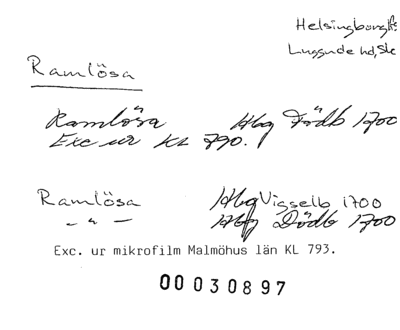 Helsingborgs
Luggude hd, Sk
Ramlösa
Ramlösa Hbg Födb 1700
Exc ur KL 790.
Ramlösa Hbg Vigselb 1700
- " - Hbg Dödb 1700
Exc. ur mikrofilm Malmöhus län KL 793.
00 030897